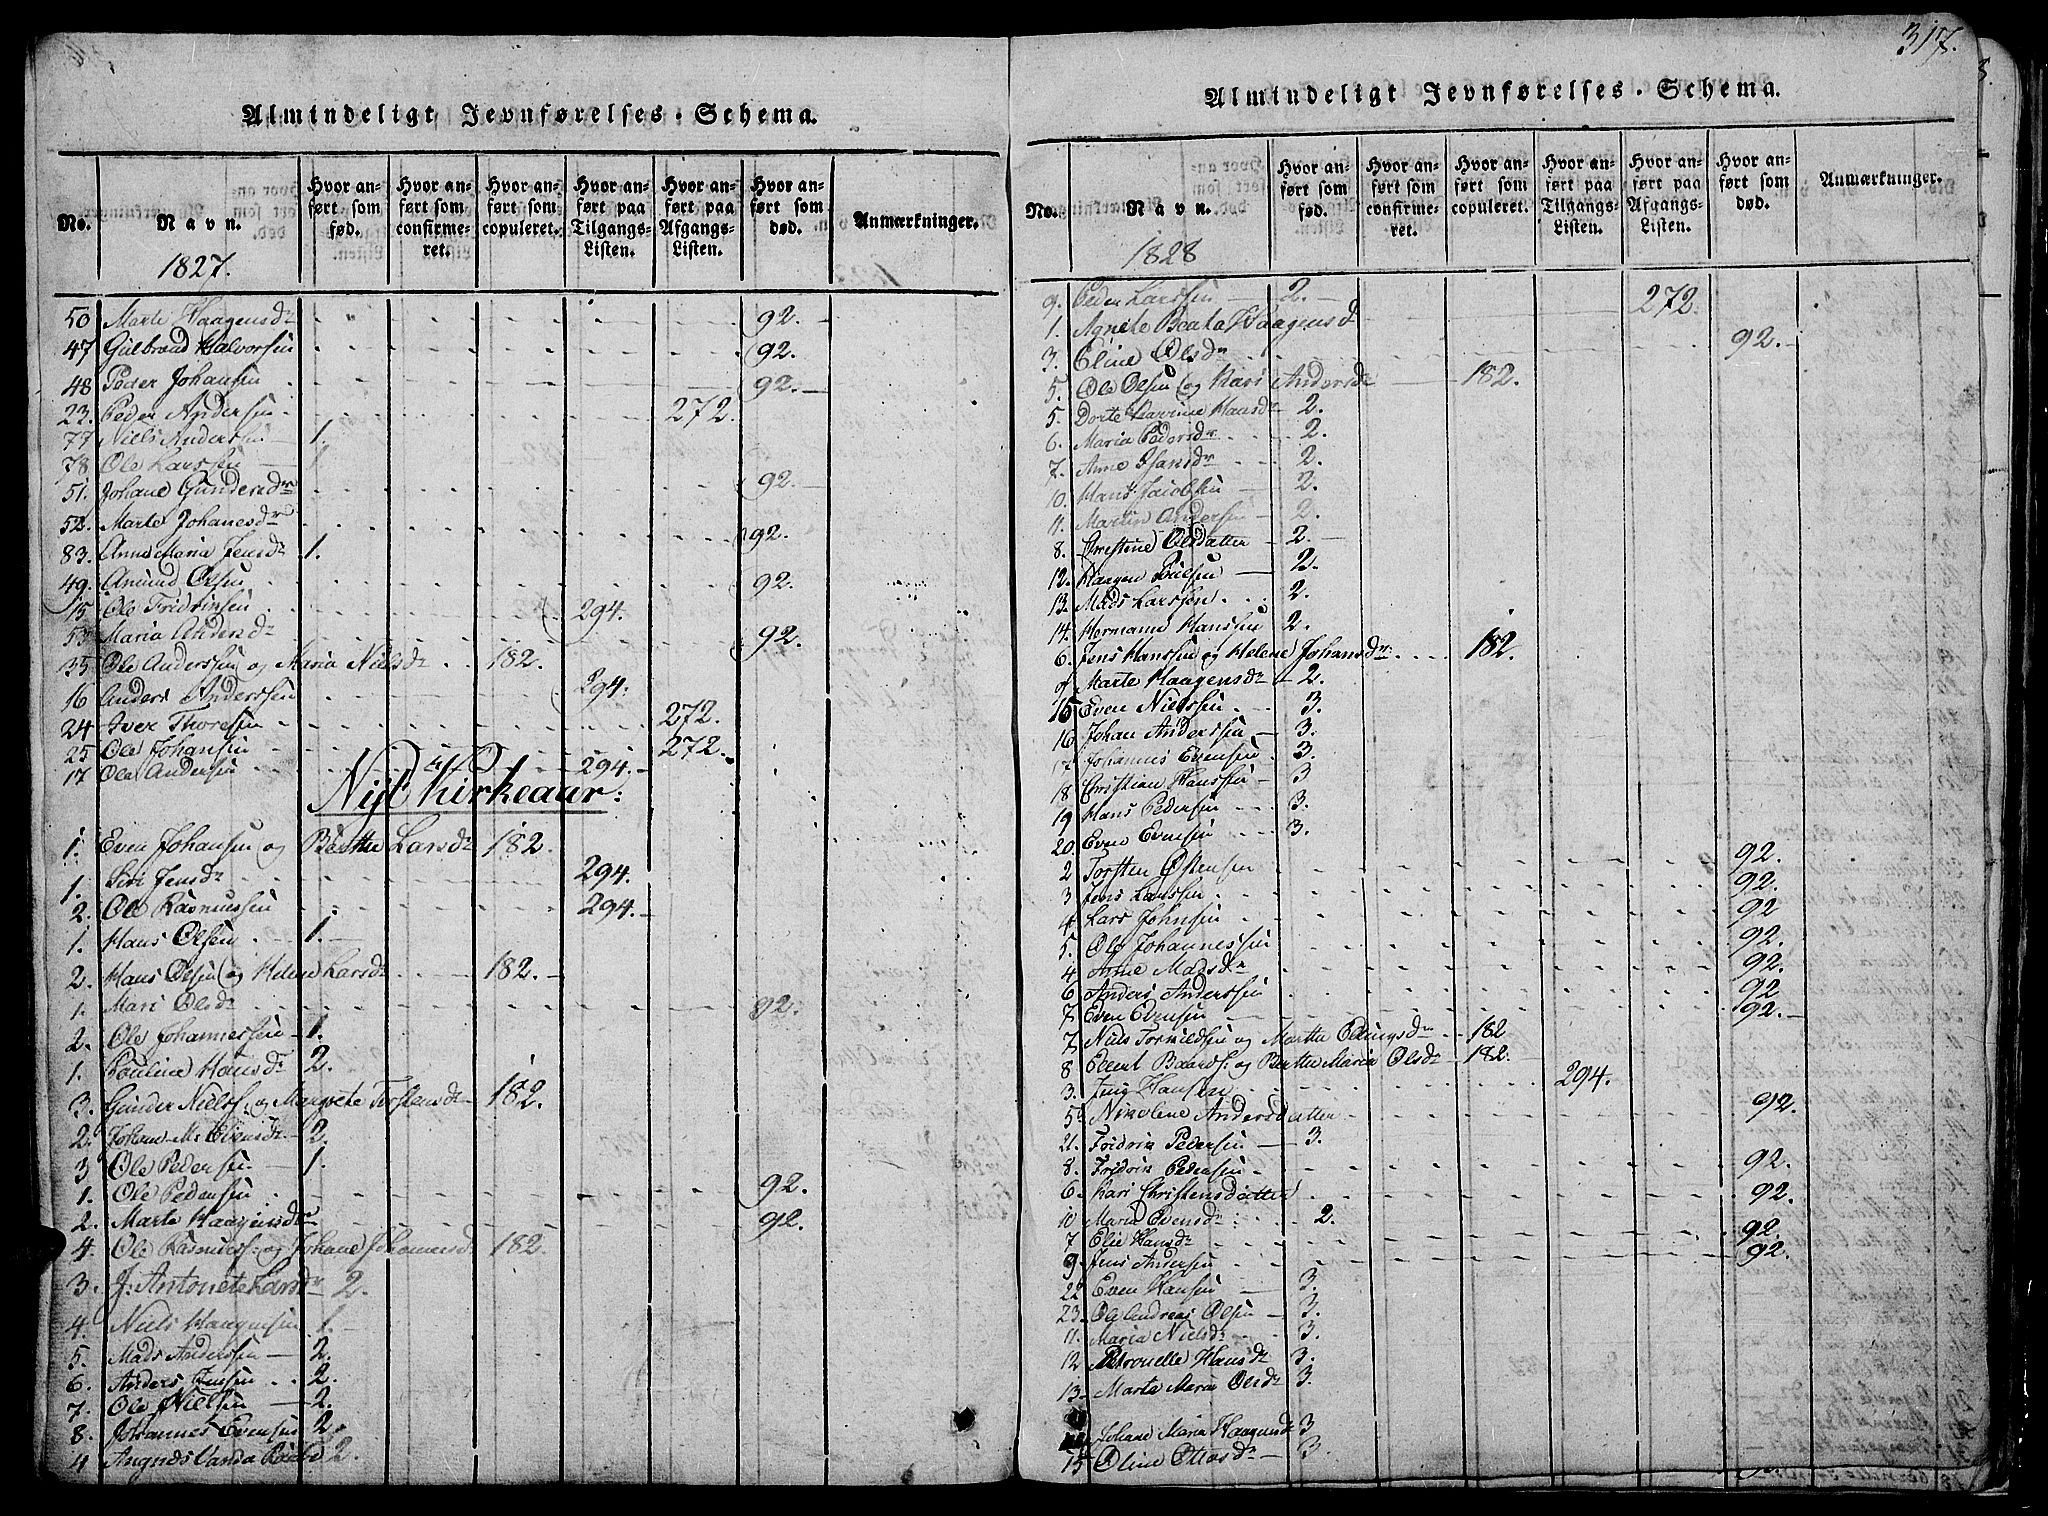 317.
Almindeligt Jevnførelses-Schema.
No. Navn. Hvor anført som fød. Hvor anført som confirmeret. Hvor anført som copuleret. Hvor anført paa Tilgangs-Listen. Hvor anført paa Afgangs-Listen. Hvor anført som død. Anmærkninger.
1827.
50 Marte Haagensdr 92.
47 Gulbrand Halvorsen 92.
48 Peder Johansen 92.
23. Peder Andersen 272.
77 Niels Anderssen 1.
78 Ole Larssen 1.
51. Johane Gundersdr 92.
52. Marte Johanesdr 92.
83. Anne Maria Jensdr 1.
49. Amund Olsen 92.
15 Ole Fridrixsen 294.
53 Maria Andersdr 92.
35 Ole Anderssen og Maria Nielsdr 182.
16 Anders Anderssen 294.
24 Iver Thoresen 272.
25 Ole Johansen 272.
17 Ole Andersen 294.
Nyt Kirkeaar:
1. Even Johansen og Berthe Larsdr 182.
1. Siri Jensdr 294.
2. Ole Rasmussen 294.
1. Hans Olsen 1.
2. Hans Olsen og Helene Larsdr 182.
1. Mari Olsdr 92.
2. Ole Johannessen 1.
1. Pauline Hansdr 2.
3. Gunder Niels. og Margrete Torstensdr 182.
2. Johane M. Evensdr 2.
3 Ole Pedersen 1.
1. Ole Pedersen 92.
2. Marte Haagensdr 92.
4. Ole Rasmuss: og Johane Johannesd. 182.
3. J: Antonete Larsdr 2.
4. Niels Haagensen 1.
5. Mads Anderssen 2.
6. Anders Jensen 2.
7. Ole Nielsen 2.
8. Johannes Evensen 2.
4 Angnes Vanda 2.
Almindeligt Jevnførelses-Schema.
No. Navn. Hvor anført som fød. Hvor anført som confirmeret. Hvor anført som copuleret. Hvor anført paa Tilgangs-Listen. Hvor anført paa Afgangs-Listen. Hvor anført som død. Anmærkninger.
1828
9. Peder Larssen 2. 272.
1. Agnete Beata Haagensd
3. Eline Olsdr 92.
5. Ole Olsen og Kari Andersdr 182.
5. Dorte Hansdr 2.
6. Maria Pedersdr 2.
7. Anne Hansdr 2.
10. Hans Jacobsen 2.
11. Martin Andersen 2.
8. Christine Olsdatter 2.
12. Haagen Poulsen 2.
13. Mads Larssen 2.
14. Hermann Hanssen 2.
6. Jens Hanssen og Helene Johansdr: 182.
9 Marte Haagensdr 2.
15 Even Nielssen 3.
16 Johan Anderssen 3.
17 Johannes Evensen 3.
18 Christian Hanssen 3
19 Hans Pedersen 3.
20. Even Evensen 3.
2 Torsten Østensen 92.
3 Jens Larssen 92.
4 Lars Johnsen 92
5. Ole Johannessen 92.
4 Anne Madsdr 92.
6 Anders Anderssen 92
7 Even Evensen 92.
7 Niels Tormodsen og Marthe 182
8 Elent Baards: og Berthe Maria Olsdr 182.
3. Jens Hansen 294.
5 Nikolene Andersdatter 92.
21. Fridrix Pedersen 3.
8. Fridrix Pedersen 92.
6. Kari Christensdatter 92.
10 Maria Evensdr 2.
7 Elie Hansdr 92.
9 Jens Andersen 92.
22 Even Hansen 3.
23. Ole Andreas Olsen 3.
11. Maria Nielsdr 3.
12 Petronelle Hansdr 3.
13. Marte Maria Olsdr 3.
Johane Maria Haagensdr 3
15 Oline Ottosdr 3.